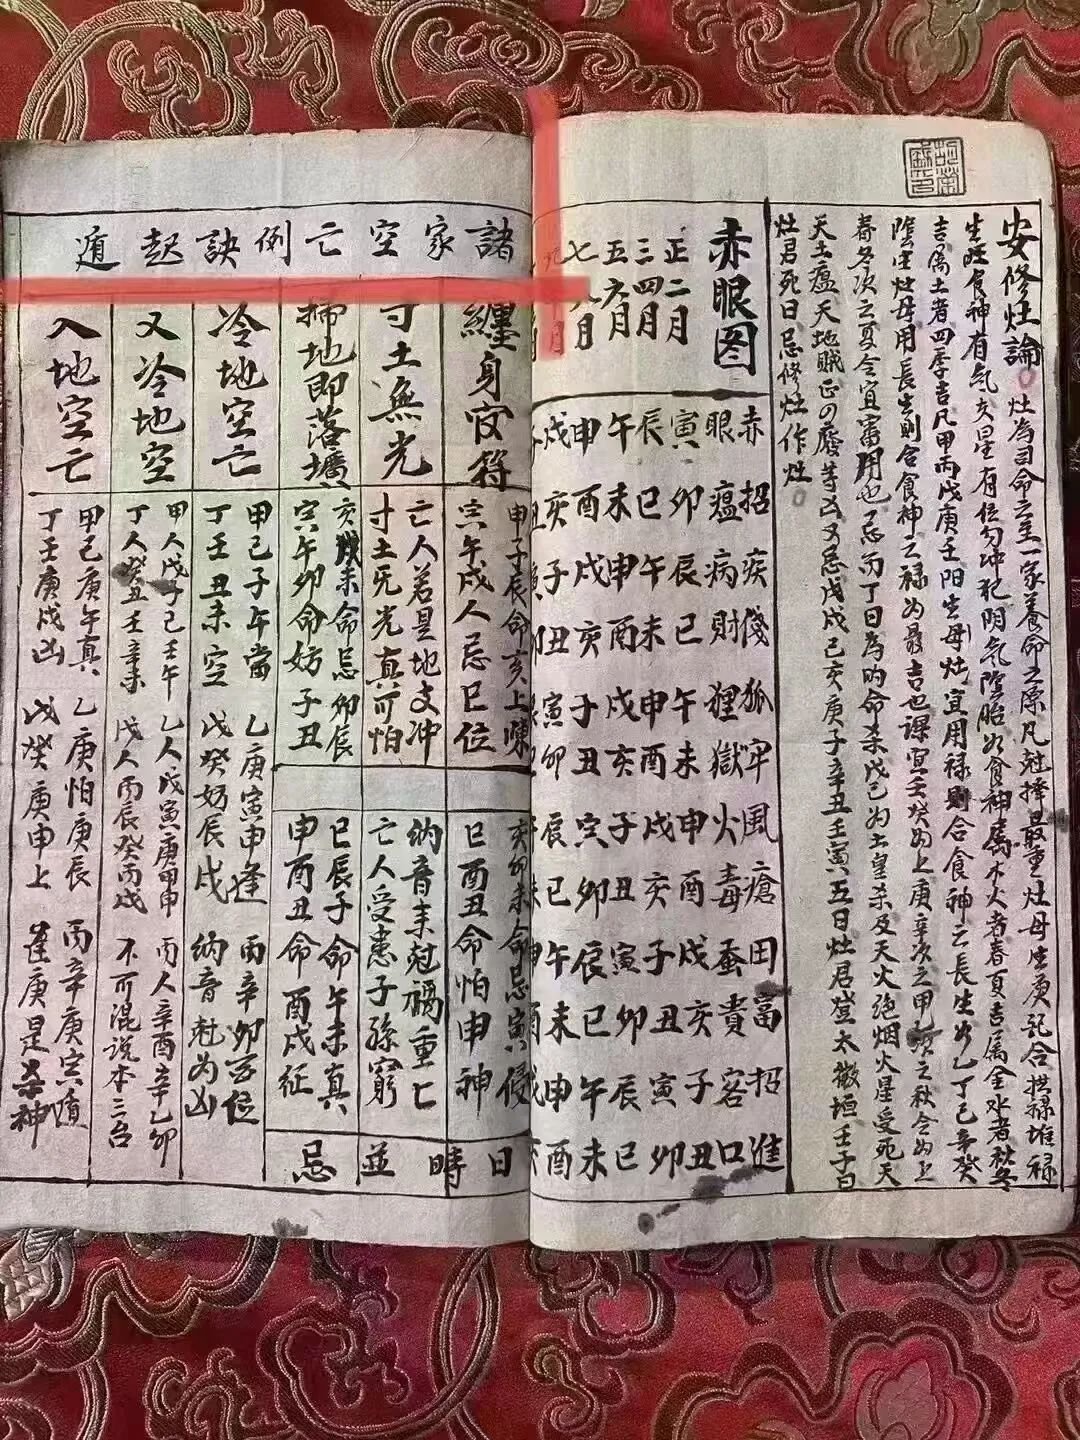 安修灶論
灶為司命之主一家養命之原凡尅擇最重灶母生庚記合拱祿堆祿
生旺食神有氣火星有位勾冲犯阴氣陰胎如食神屬木火者春夏吉属金水者秋冬
吉属土者四季吉凡甲丙戊庚壬阳生母灶宜用禄則合食神之長生如乙丁己辛癸
陰生灶母用長生則合食神之禄為最吉也課宜壬癸為上庚辛次之甲乙次之秋令為上
春冬次之夏令宜審用也忌丙丁日為的命杀戊己為土皇杀及天火絶烟火星受死天
天土瘟天地賊正四廢等凶又忌戊戌己亥庚子辛丑壬寅五日灶君登太微垣壬子日
灶君死日忌修灶作灶
赤眼图
正二月
三四月
五六月
七八月
赤招疾傷狐牢風瘡田富招進
眼瘟病財狸獄火毒蚕貴客口
寅卯辰巳午未申酉戌亥子丑
辰巳午未申酉戌亥子丑寅卯
午未申酉戌亥子丑寅卯辰巳
申酉戌亥子丑寅卯辰巳午未
戌亥子丑寅卯辰巳午未申酉
諸家空亡例訣起遁
纏身官符
申子辰命亥上嗔
寅午戌人忌巳位
亥卯未命忌寅侵
巳酉丑命怕申神
寸土無光
亡人若是地支冲
寸土旡光真可怕
納音来尅禍重亡
亡人受患子孫窮
掃地即落壙
亥戌未命忌卯辰
寅午卯命妨子丑
巳辰子命午未真
申酉丑命酉戌征
日時並忌
冷地空亡
甲己子午當
丁壬丑未空
乙庚寅申逢
戊癸妨辰戌
丙辛卯酉位
納音尅为凶
又冷地空
甲人戊子己壬午
丁人癸丑壬辛未
乙人戊寅庚甲申
戊人丙辰癸丙戌
丙人辛酉辛乙卯
不可混説本三台
入地空亡
甲己庚午真
丁壬庚戌凶
乙庚怕庚辰
戊癸庚申上
丙辛庚寅嗔
崔庚是杀神